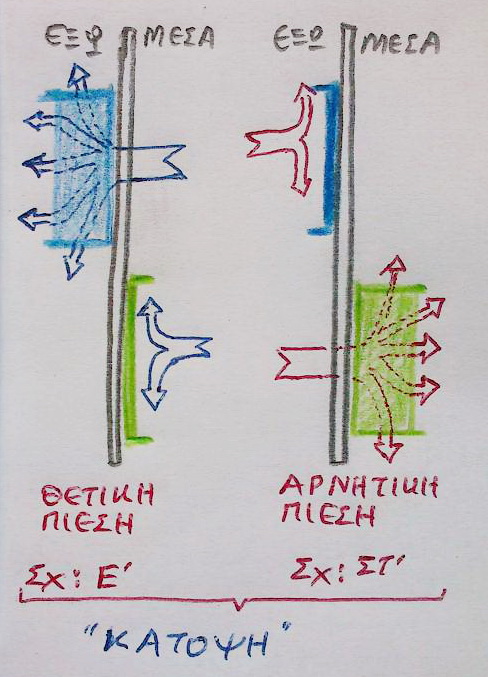 ΕΞΩ ΜΕΣΑ
ΕΞΩ ΜΕΣΑ
ΘΕΤΙΚΗ
ΠΙΕΣΗ
Σχ: Ε'
ΑΡΝΗΤΙΚΗ
ΠΙΕΣΗ
Σχ: ΣΤ'
"ΚΑΤΟΨΗ"